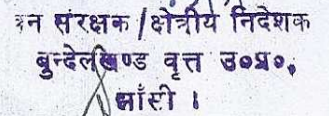 वन संरक्षक /क्षेत्रीय निदेशक
बुन्देलखण्ड वृत्त उ०प्र०,
झाँसी ।